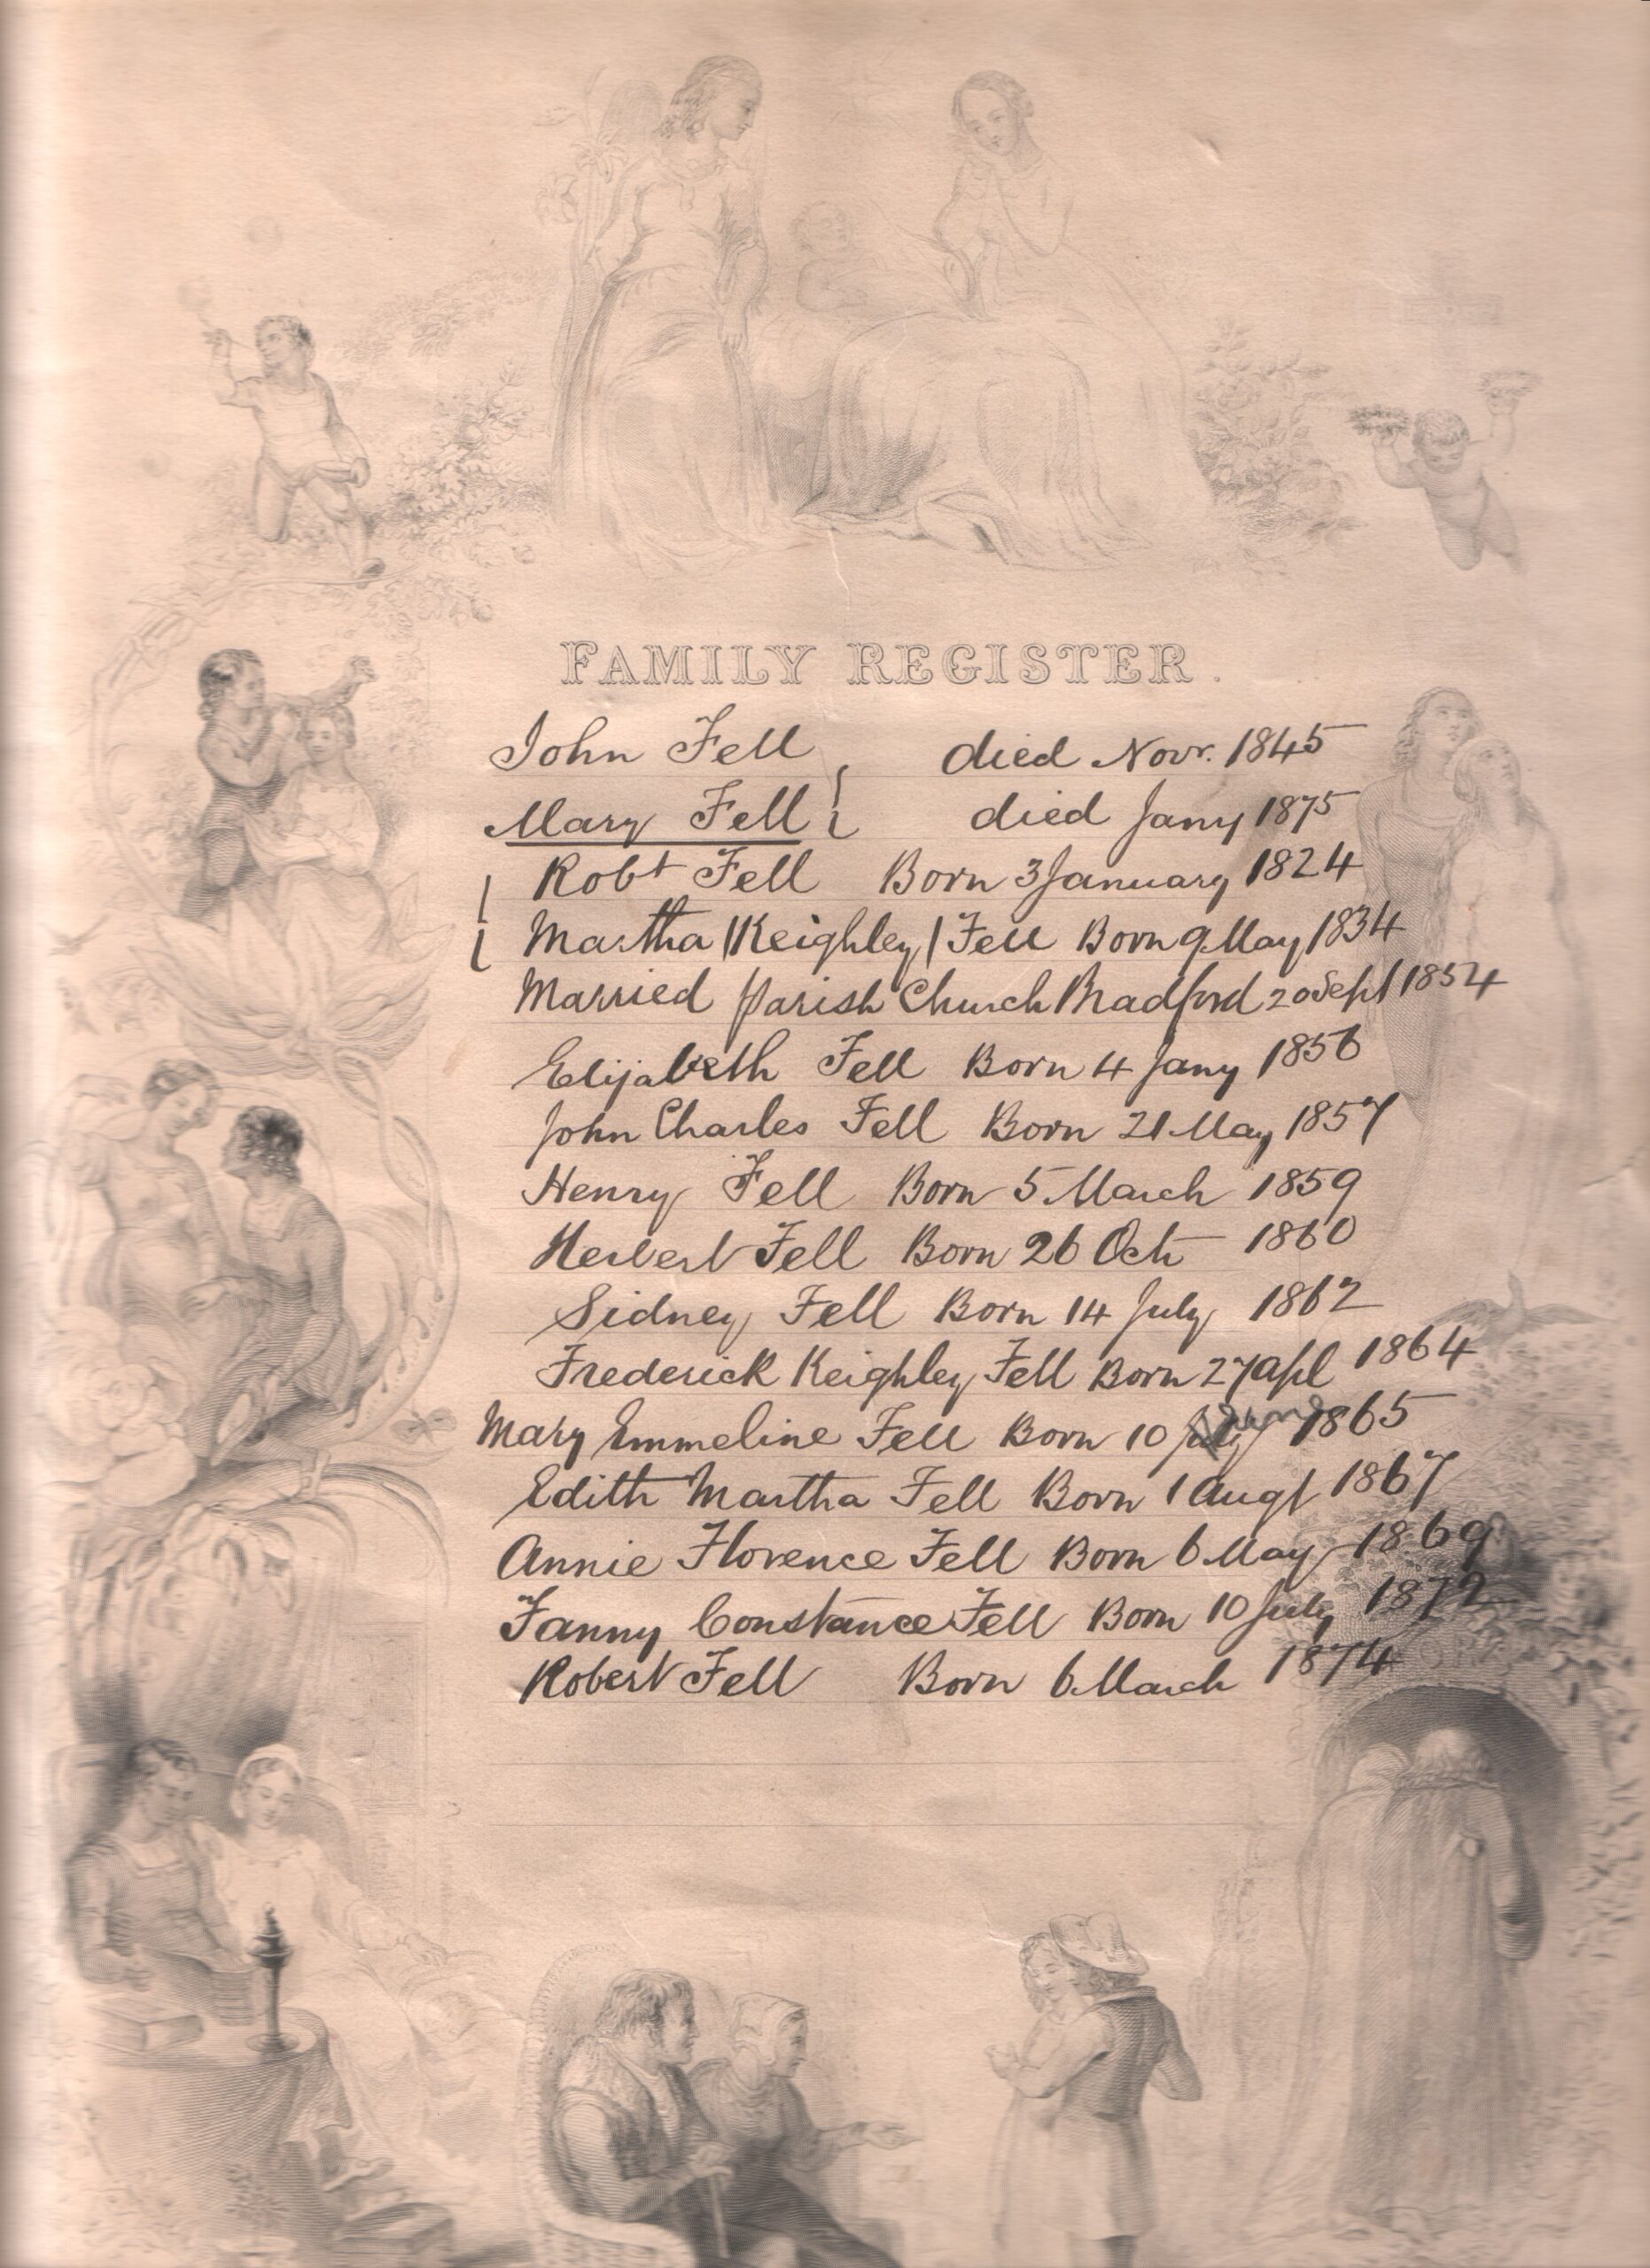 FAMILY REGISTER.
John Fell died Novr. 1845
Mary Fell died Jany 1875
Robt Fell Born 3 January 1824
Martha (Keighley) Fell Born 9 May 1834
Married Parish Church Bradford 20 Sept 1854
Elizabeth Fell Born 4 Jany 1856
John Charles Fell Born 21 May 1857
Henry Fell Born 5 March 1859
Herbert Fell Born 26 Oct 1860
Sidney Fell Born 14 July 1862
Frederick Keighley Fell Born 27 Apl 1864
Mary Emmeline Fell Born 10 July June 1865
Edith Martha Fell Born 1 Augt 1867
Annie Florence Fell Born 6 May 1869
Fanny Constance Fell Born 10 July 1872
Robert Fell Born 6 March 1874